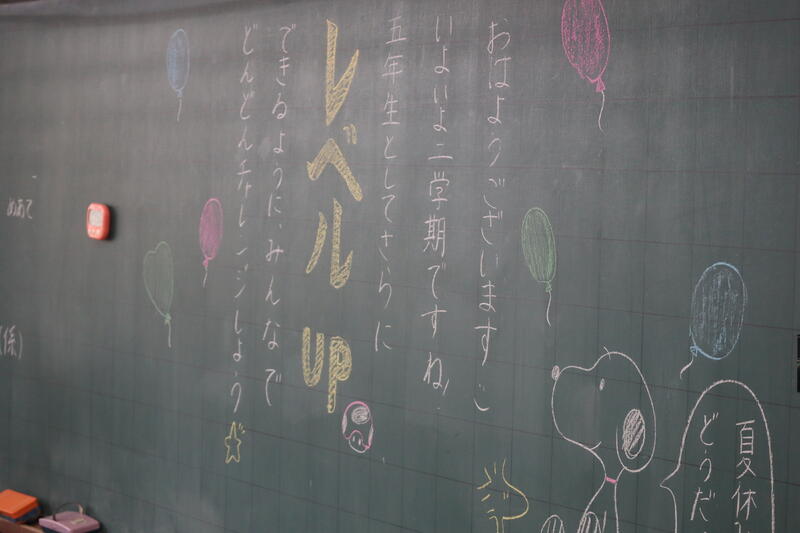 おはようございます
いよいよ二学期ですね!
五年生としてさらに
レベルUP
できるように、みんなで
どんどんチャレンジしよう
夏休み
どうだ
めあて
(係)